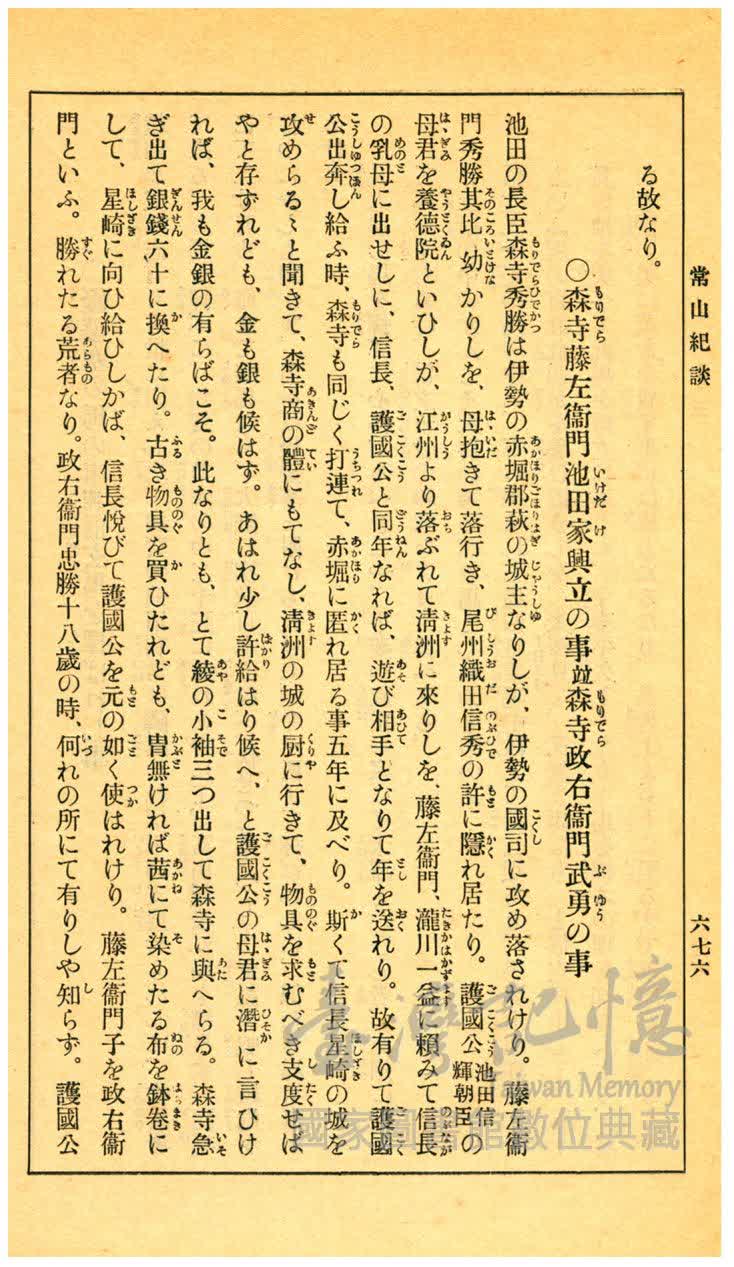 常山紀談
六七六
る故なり。
〇森寺藤左衞門池田家興立の事竝森寺政右衞門武勇の事
池田の長臣森寺秀勝は伊勢の赤堀郡萩の城主なりしが、伊勢の國司に攻め落されけり。藤左衞
門秀勝其比幼かりしを、母抱きて落行き、尾州織田信秀の許に隱れ居たり。護國公池田信輝朝臣の
母君を養德院といひしが、江州より落ぶれて淸洲に來りしを、藤左衞門、瀧川一益に賴みて信長
の乳母に出せしに、信長、護國公と同年なれば、遊び相手となりて年を送れり。故有りて護國
公出奔し給ふ時、森寺も同じく打連て、赤堀に匿れ居る事五年に及べり。斯くて信長星崎の城を
攻めらるゝと聞きて、森寺商の體にもてなし、淸洲の城の厨に行きて、物具を求むべき支度せば
やと存ずれども、金も銀も候はず。あはれ少し許給はり候へ、と護國公の母君に潛に言ひけ
れば、我も金銀の有らばこそ。此なりとも、とて綾の小袖三つ出して森寺に與へらる。森寺急
ぎ出て銀錢六十に換へたり。古き物具を買ひたれども、冑無ければ茜にて染めたる布を鉢卷に
して、星崎に向ひ給ひしかば、信長悅びて護國公を元の如く使はれけり。藤左衞門子を政右衞
門といふ。勝れたる荒者なり。政右衞門忠勝十八歲の時、何れの所にて有りしや知らず。護國公
臺灣記憶
Taiwan Memory
國家圖書館數位典藏